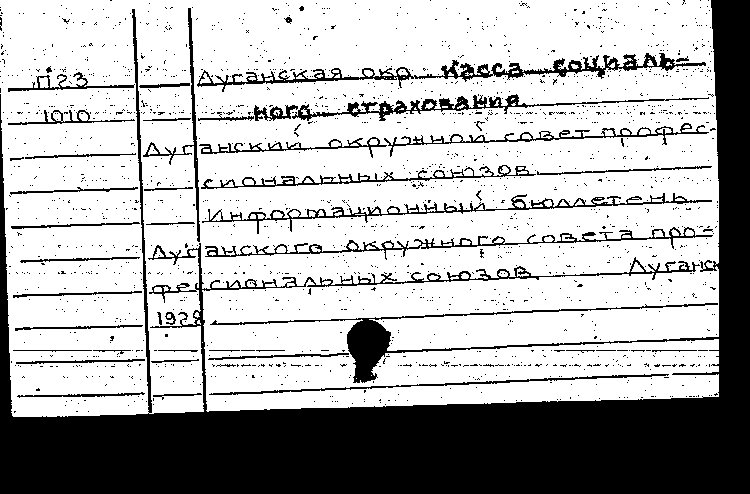 П23 Луганская окр. касса социаль-
1010 ного страхования.
Луганский окружной совет профес-
сиональных союзов.
Информационный бюллетень
Луганского окружного совета про-
фессиональных союзов. Луганск
1928.